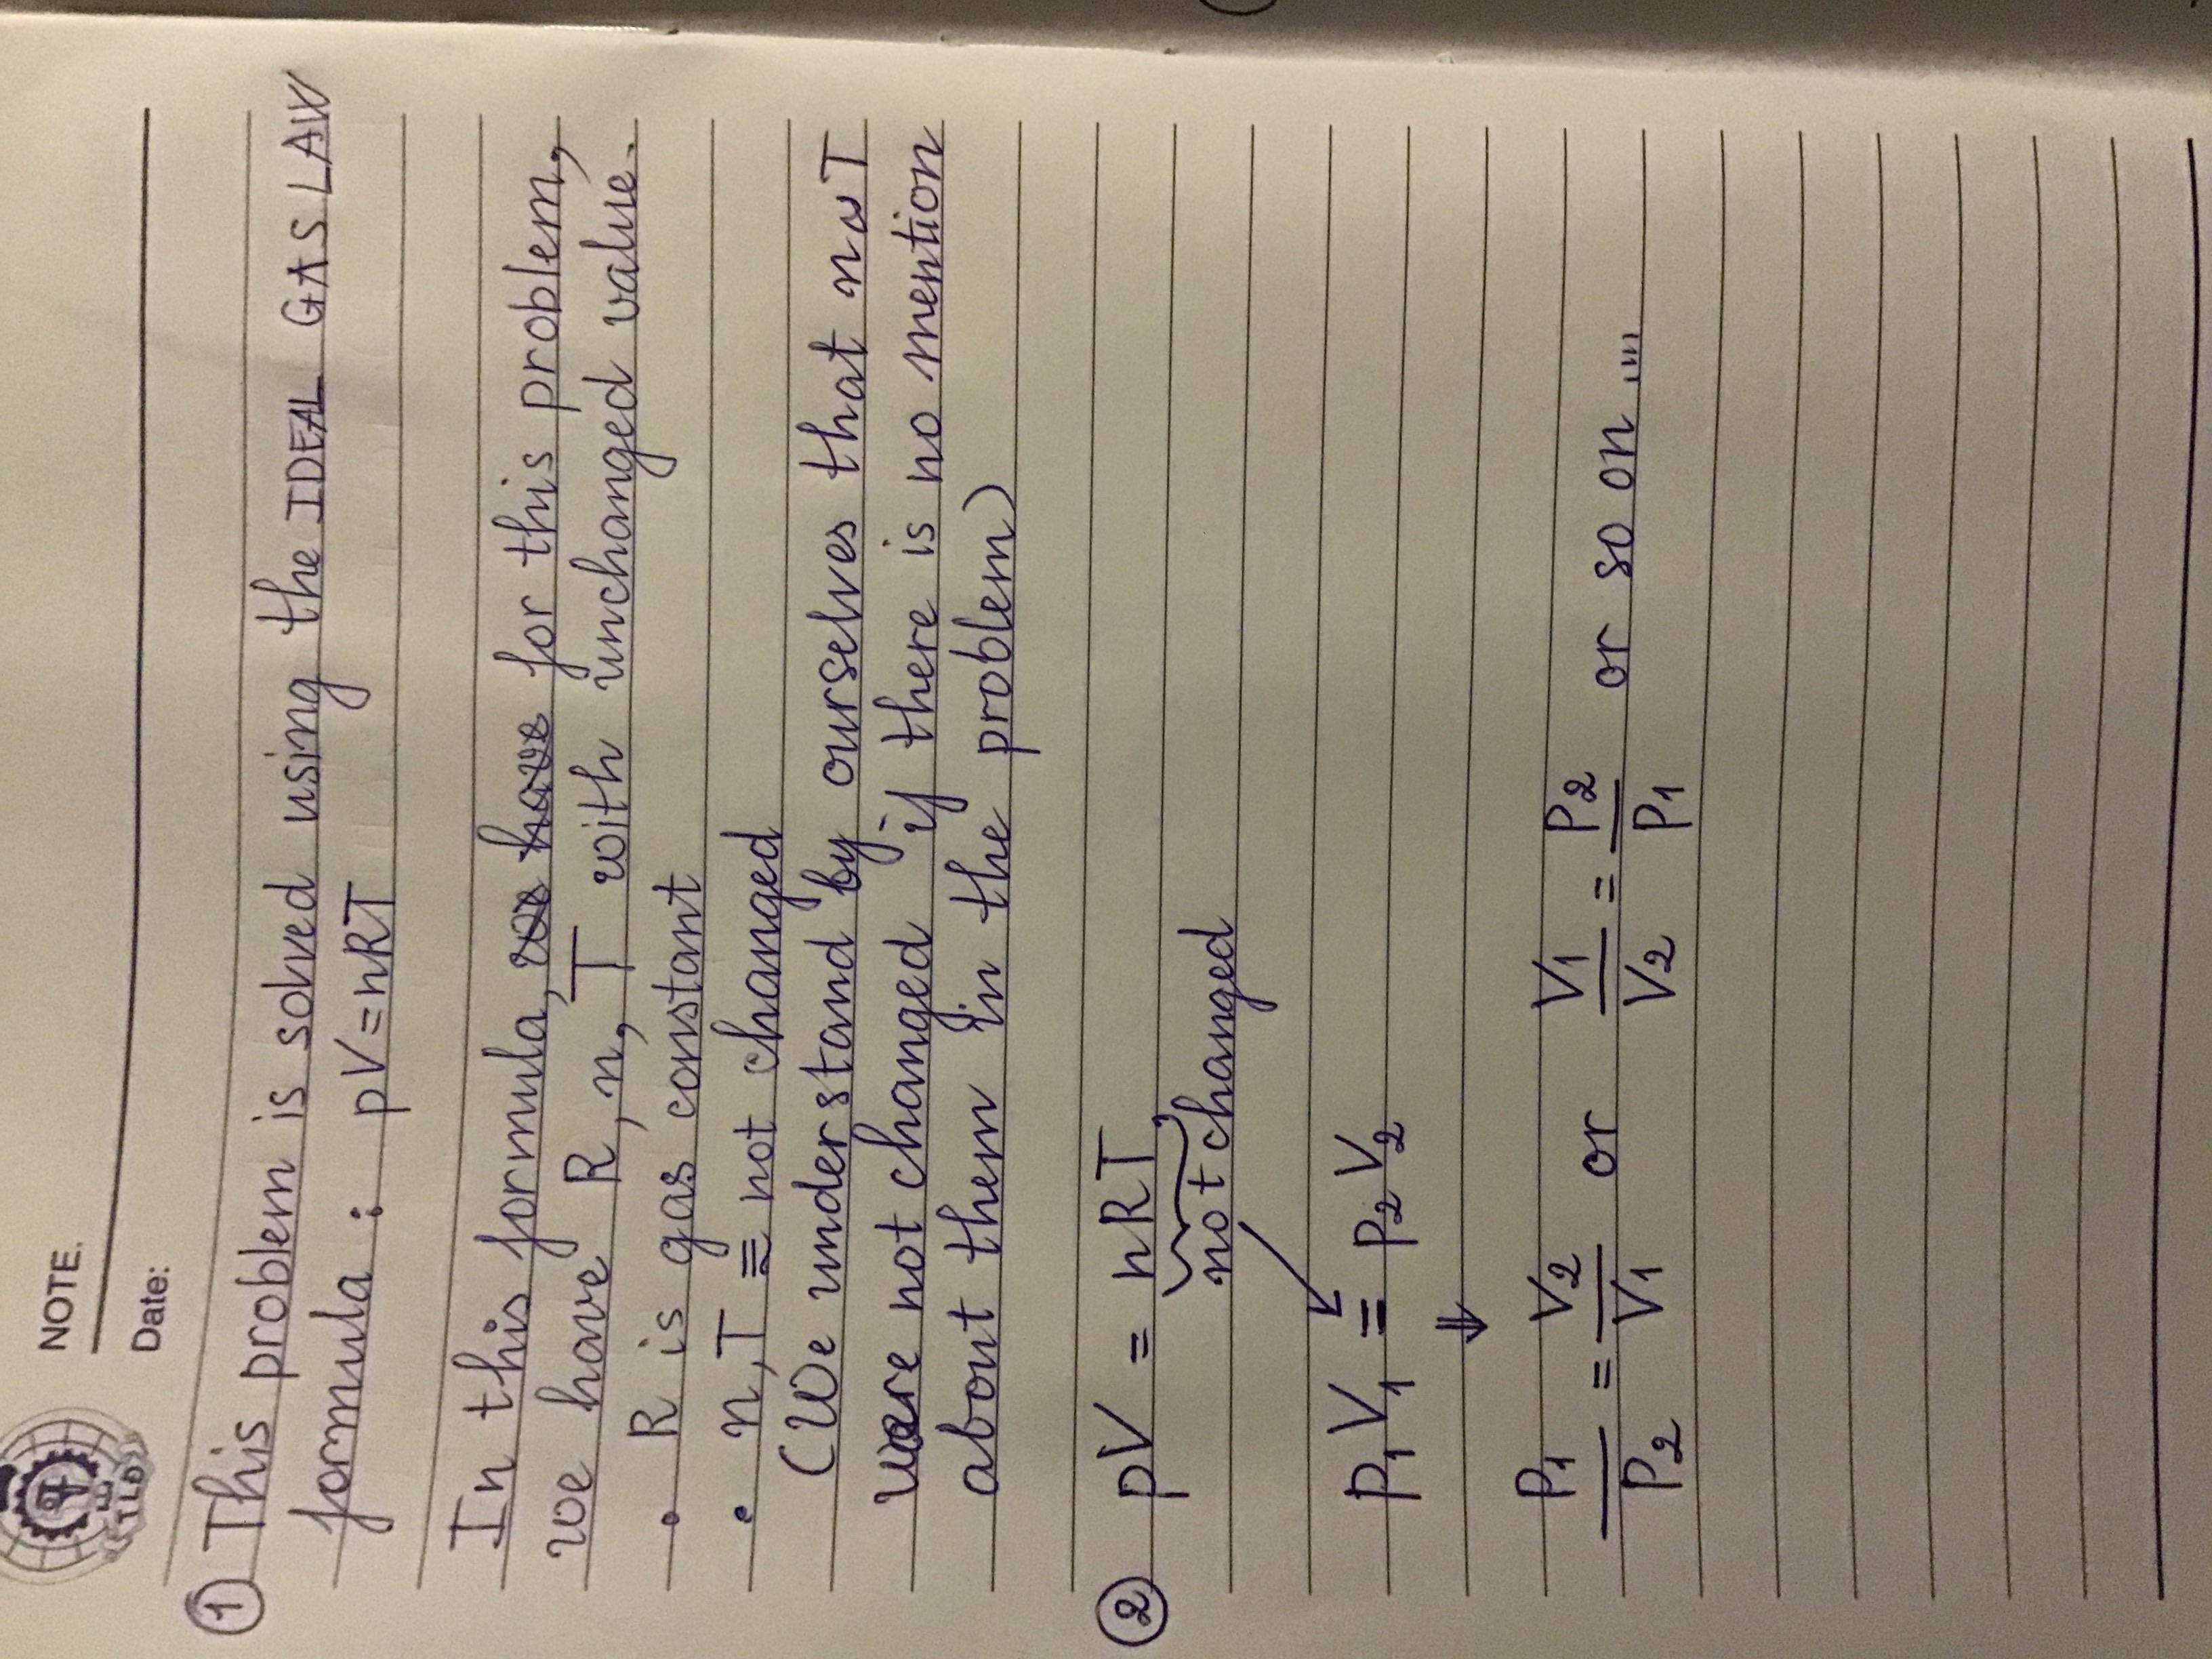 NOTE.
Date:
① This problem is solved using the IDEAL GAS LAW
formula : pV=nRT
In this formula, we have for this problem,
we have R, n, T with unchanged value.
• R is gas constant
• n, T = not changed
(We understand by ourselves that n∞T
were not changed if there is no mention
about them in the problem)
② pV = nRT
not changed
P₁V₁ = P₂V₂
⇓
P₁/P₂ = V₂/V₁ or V₁/V₂ = P₂/P₁ or so on ...